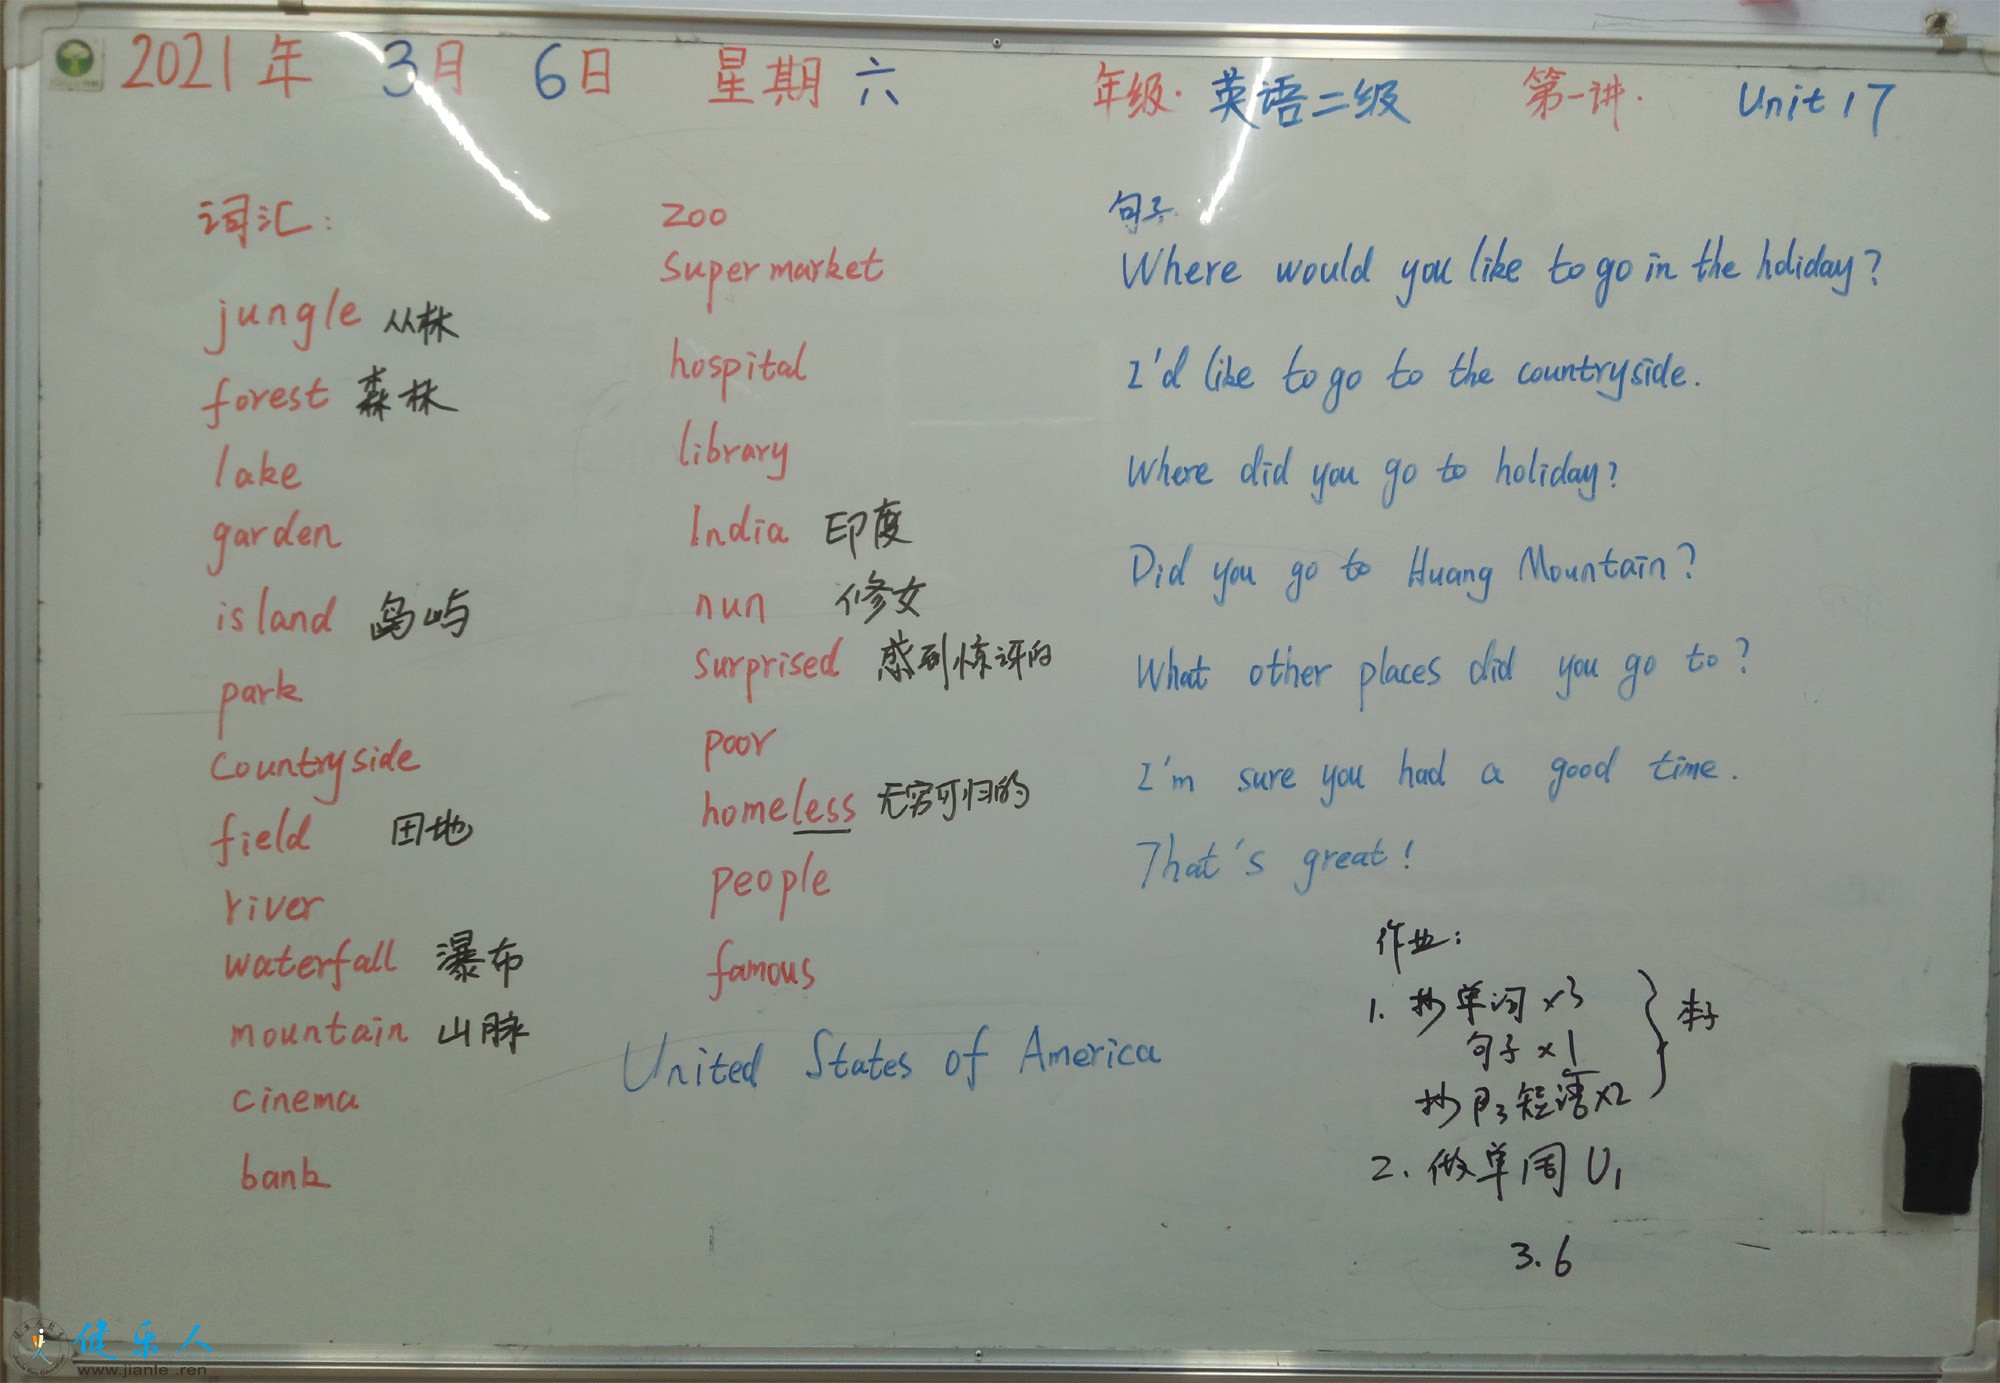 2021年 3月 6日 星期六 年级. 英语二级 第一讲. Unit 17
词汇:
jungle 丛林
forest 森林
lake
garden
island 岛屿
park
countryside
field 田地
river
waterfall 瀑布
mountain 山脉
cinema
bank
zoo
supermarket
hospital
library
India 印度
nun 修女
surprised 感到惊讶的
poor
homeless 无家可归的
people
famous
United States of America
句子.
Where would you like to go in the holiday?
I'd like to go to the countryside.
Where did you go to holiday?
Did you go to Huang Mountain?
What other places did you go to?
I'm sure you had a good time.
That's great!
作业:
1. 抄单词×3
句子×1
抄P3短语×2
本子
2. 做单周U1
3.6
健乐人
www.jianle.ren